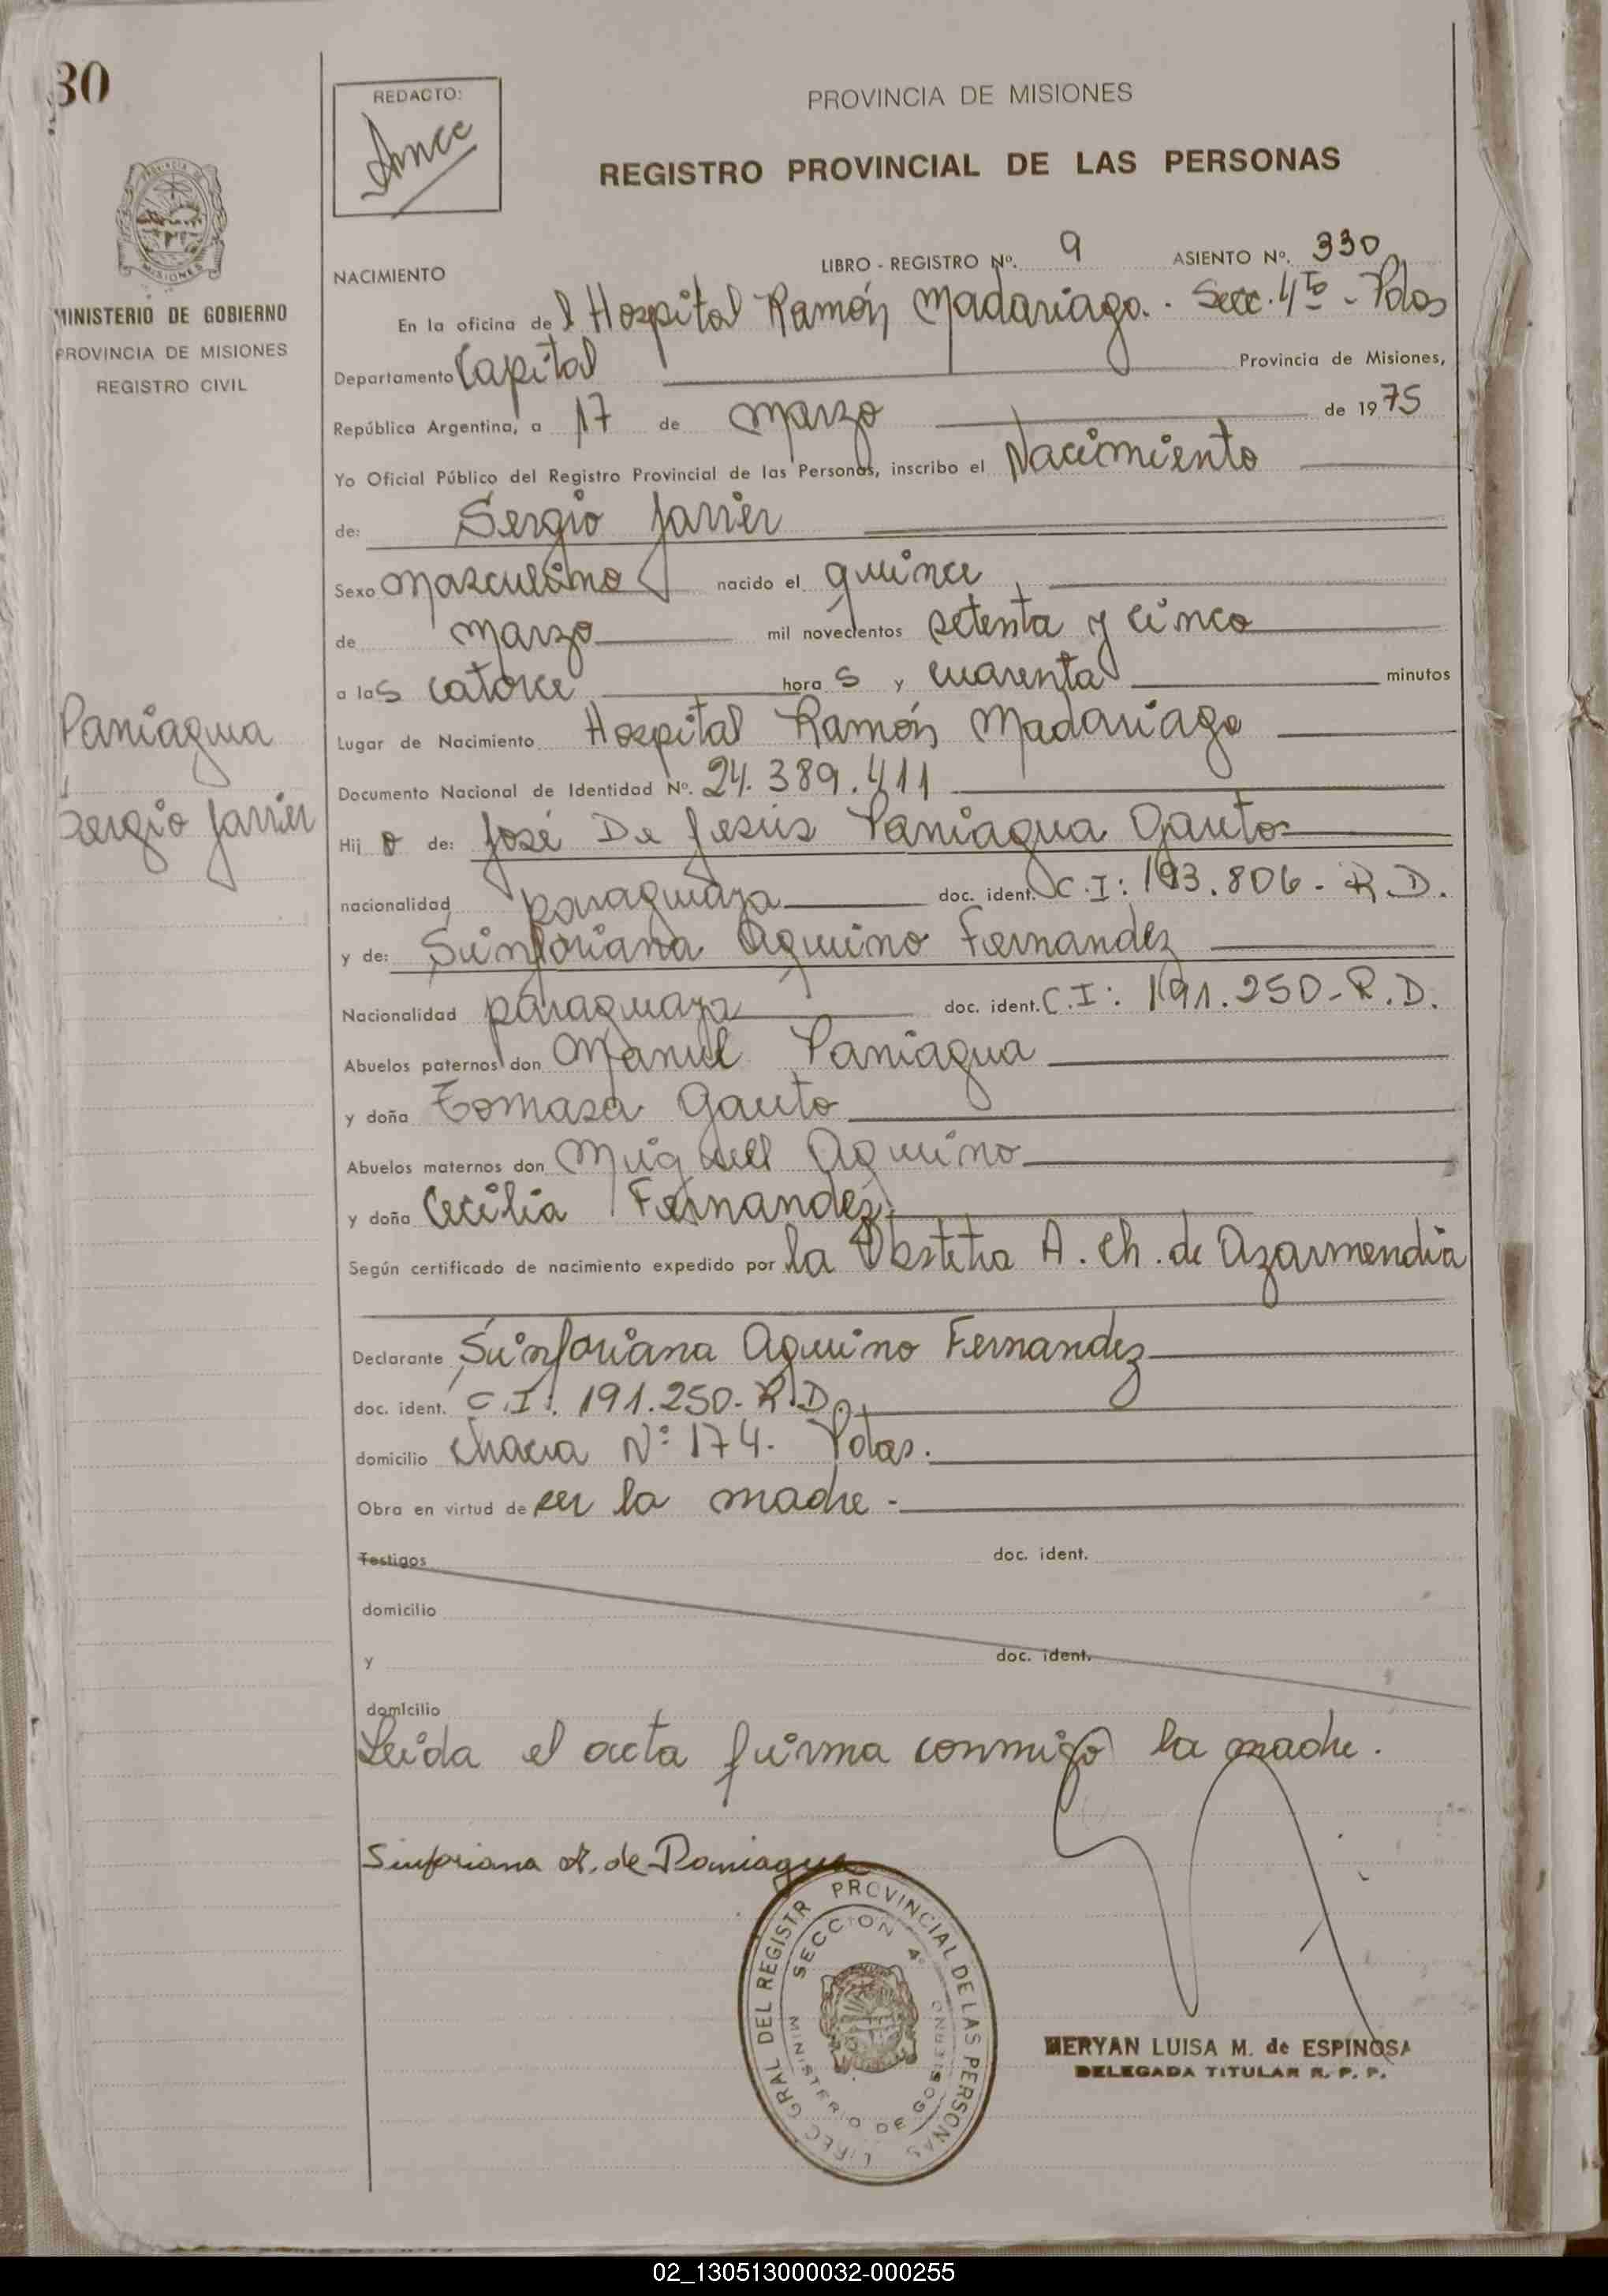 30
REDACTO:
PROVINCIA DE MISIONES
REGISTRO PROVINCIAL DE LAS PERSONAS
MINISTERIO DE GOBIERNO
PROVINCIA DE MISIONES
REGISTRO CIVIL
NACIMIENTO LIBRO - REGISTRO Nº. 9 ASIENTO Nº. 330
En la oficina del Hospital Ramón Madariaga. - Secc. 4ta - Pdas
Departamento Capital Provincia de Misiones,
República Argentina, a 17 de marzo de 1975
Yo Oficial Público del Registro Provincial de las Personas, inscribo el Nacimiento
de: Sergio Javier
Sexo masculino nacido el quince
de marzo mil novecientos setenta y cinco
a las catorce horas y cuarenta minutos
Paniagua
Sergio Javier
Lugar de Nacimiento Hospital Ramón Madariaga
Documento Nacional de Identidad Nº. 24.389.411
Hijo de: José De Jesús Paniagua Gauto
nacionalidad paraguaya doc. ident. C.I: 193.806 - R.D.
y de: Sinforiana Aquino Fernandez
Nacionalidad paraguaya doc. ident. C.I: 191.250 - R.D.
Abuelos paternos don Manuel Paniagua
y doña Tomasa Gauto
Abuelos maternos don Miguel Aquino
y doña Cecilia Fernandez
Según certificado de nacimiento expedido por la Obstetra A. Ch. de Azarmendia
Declarante Sinforiana Aquino Fernandez
doc. ident. C.I: 191.250 - R.D.
domicilio chacra Nº 174. Pdas.
Obra en virtud de ser la madre -
Testigos doc. ident.
domicilio
y doc. ident.
domicilio
Leida el acta firma conmigo la madre.
Sinforiana A. de Paniagua
DIREC. GRAL DEL REGISTR PROVINCIAL DE LAS PERSONAS
SECCION 4º
MINISTERIO DE GOBIERNO
MERYAN LUISA M. de ESPINOSA
DELEGADA TITULAR R. P. P.
02_130513000032-000255